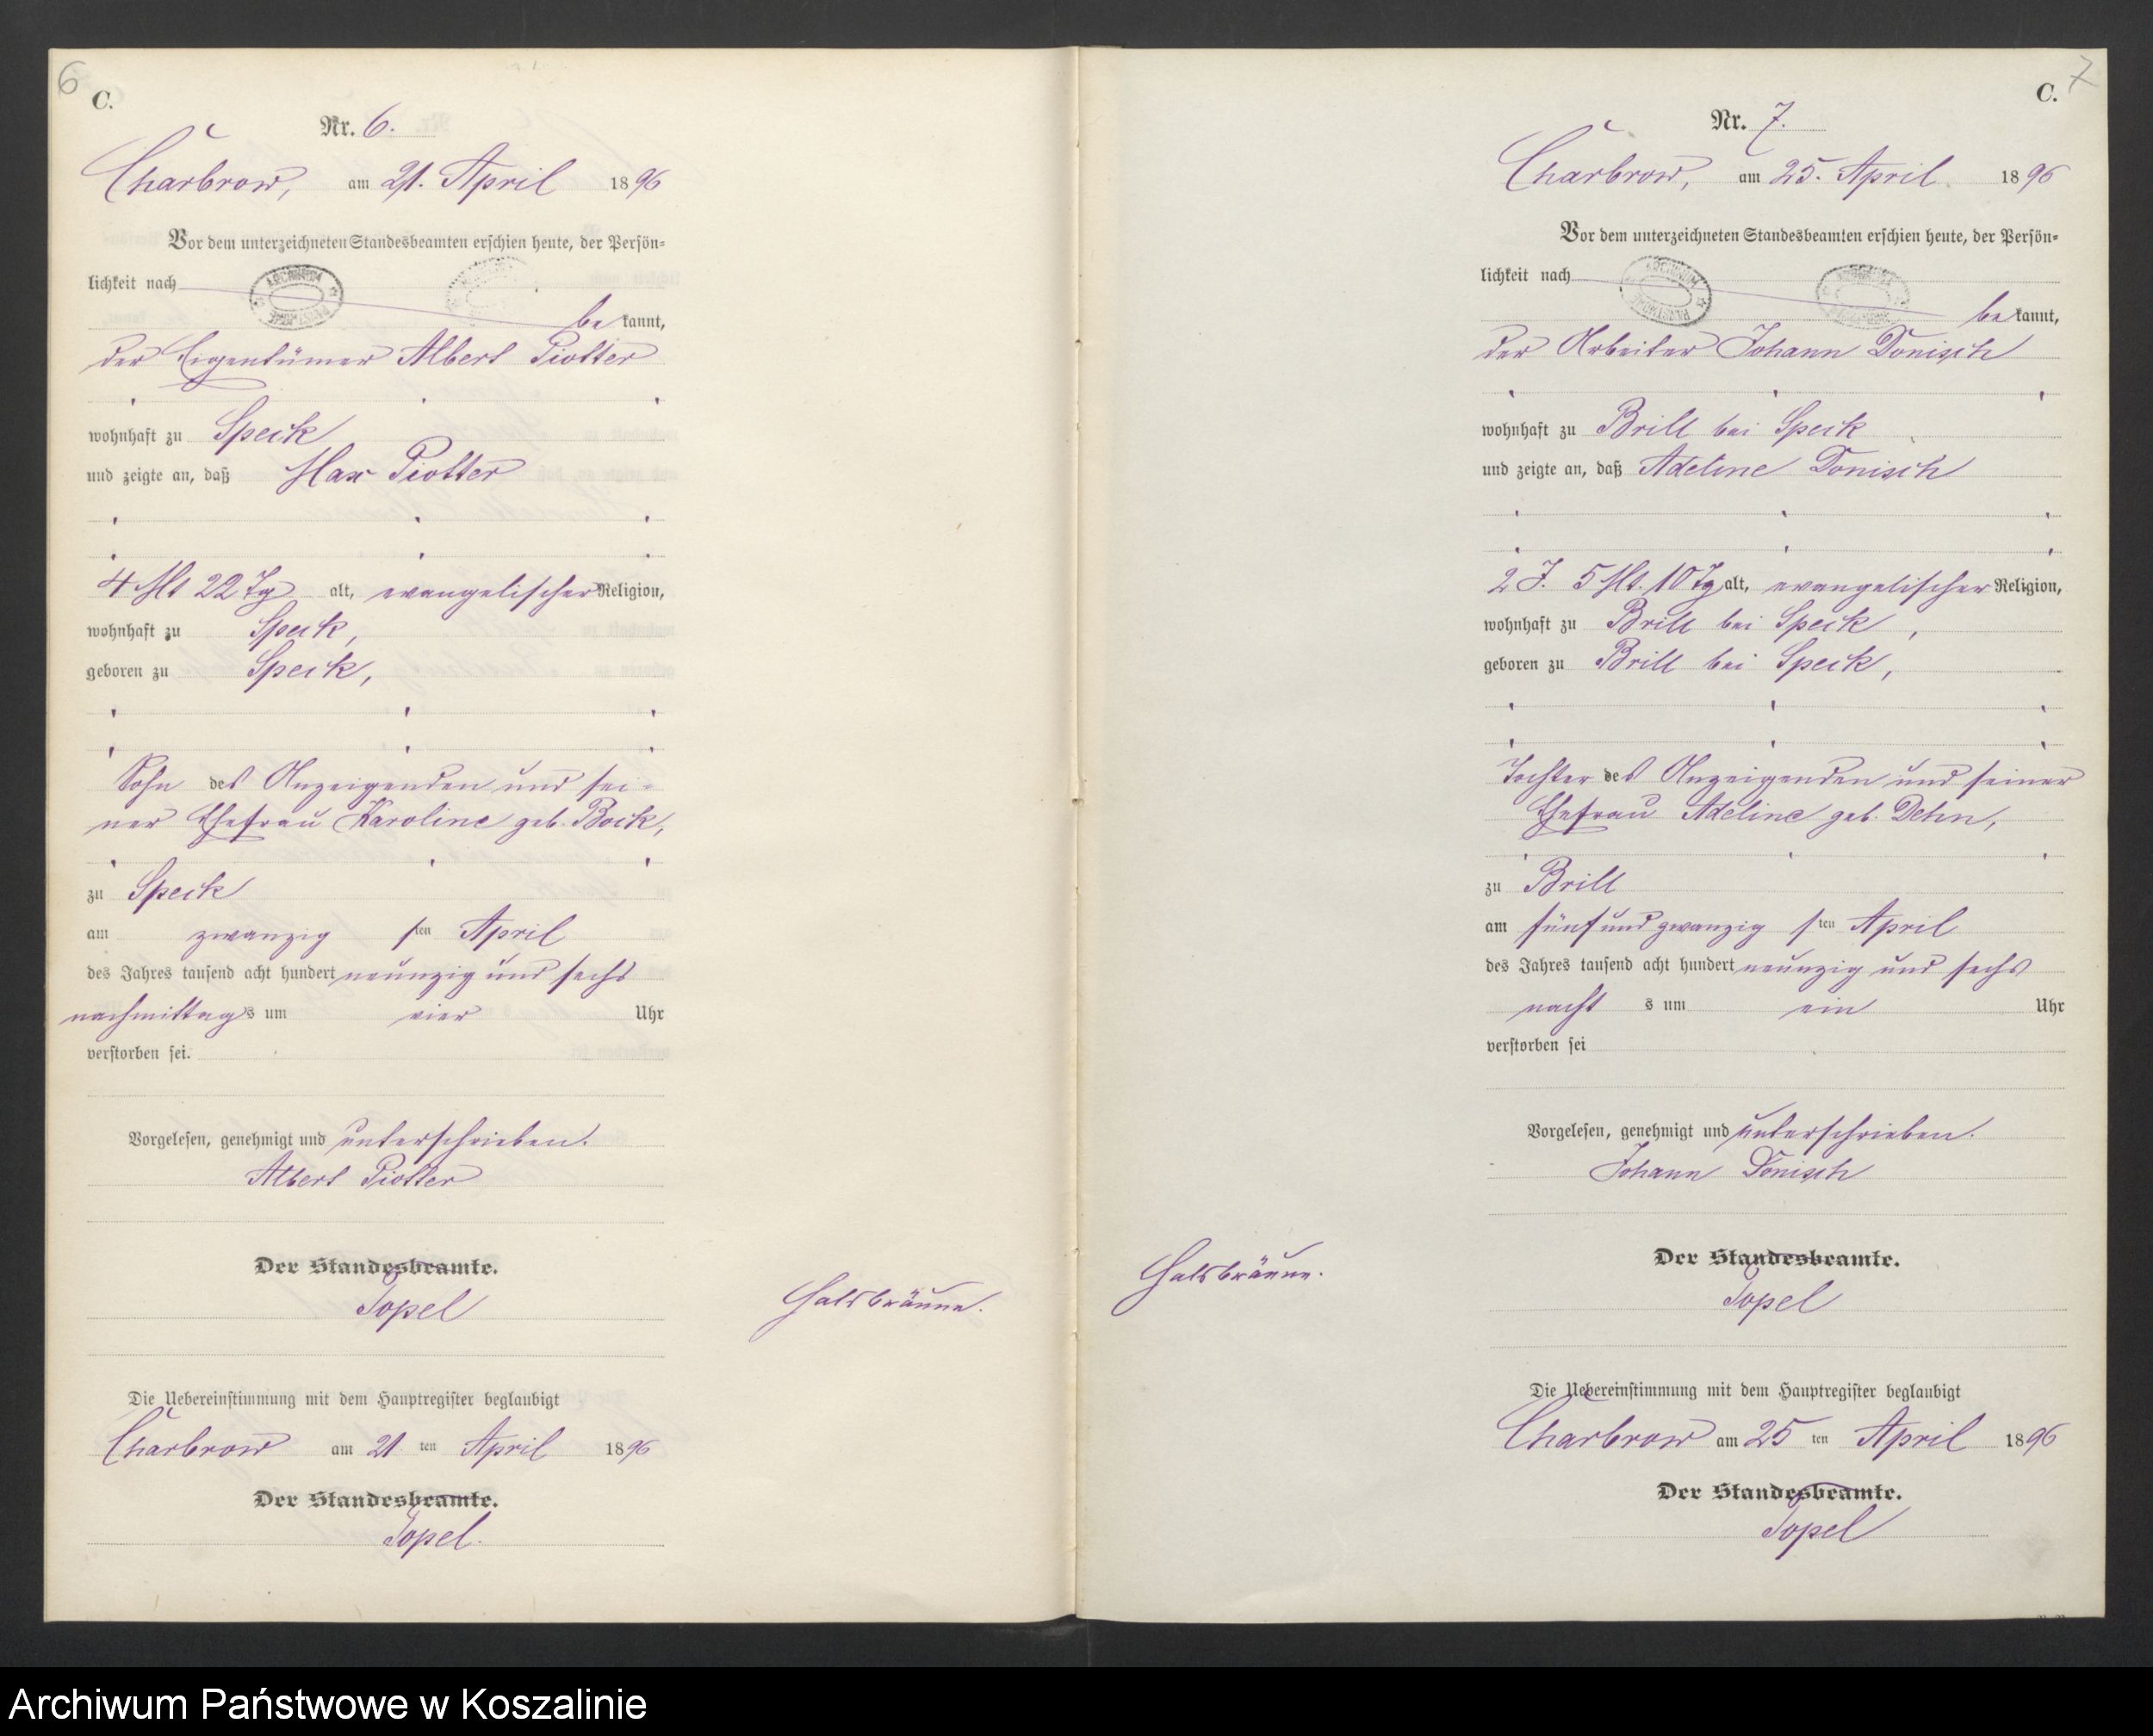 6
C.
Nr. 6.
Charbrow, am 21. April 1896
Vor dem unterzeichneten Standesbeamten erschien heute, der Persön-
lichkeit nach
be kannt,
der Eigentümer Albert Piotter
wohnhaft zu Speck
und zeigte an, daß Max Piotter
4 Mt 22 Tg alt, evangelischer Religion,
wohnhaft zu Speck,
geboren zu Speck,
Sohn des Anzeigenden und sei-
ner Ehefrau Karoline geb. Bock,
zu Speck
am zwanzigsten April
des Jahres tausend acht hundert neunzig und sechs
nachmittags um vier Uhr
verstorben sei.
Vorgelesen, genehmigt und unterschrieben.
Albert Piotter
Der Standesbeamte.
Topel
Halsbräune.
Die Uebereinstimmung mit dem Hauptregister beglaubigt
Charbrow am 21 ten April 1896
Der Standesbeamte.
Topel.
7
C.
Nr. 7.
Charbrow, am 25. April 1896
Vor dem unterzeichneten Standesbeamten erschien heute, der Persön-
lichkeit nach
be kannt,
der Arbeiter Johann Donisch
wohnhaft zu Brill bei Speck
und zeigte an, daß Adeline Donisch
2 J. 5 Mt. 10 Tg alt, evangelischer Religion,
wohnhaft zu Brill bei Speck,
geboren zu Brill bei Speck,
Tochter des Anzeigenden und seiner
Ehefrau Adeline geb. Dehn,
zu Brill
am fünfundzwanzigsten April
des Jahres tausend acht hundert neunzig und sechs
nachts um ein Uhr
verstorben sei
Vorgelesen, genehmigt und unterschrieben.
Johann Donisch
Der Standesbeamte.
Topel
Halsbräune.
Die Uebereinstimmung mit dem Hauptregister beglaubigt
Charbrow am 25 ten April 1896
Der Standesbeamte.
Topel
Archiwum Państwowe w Koszalinie